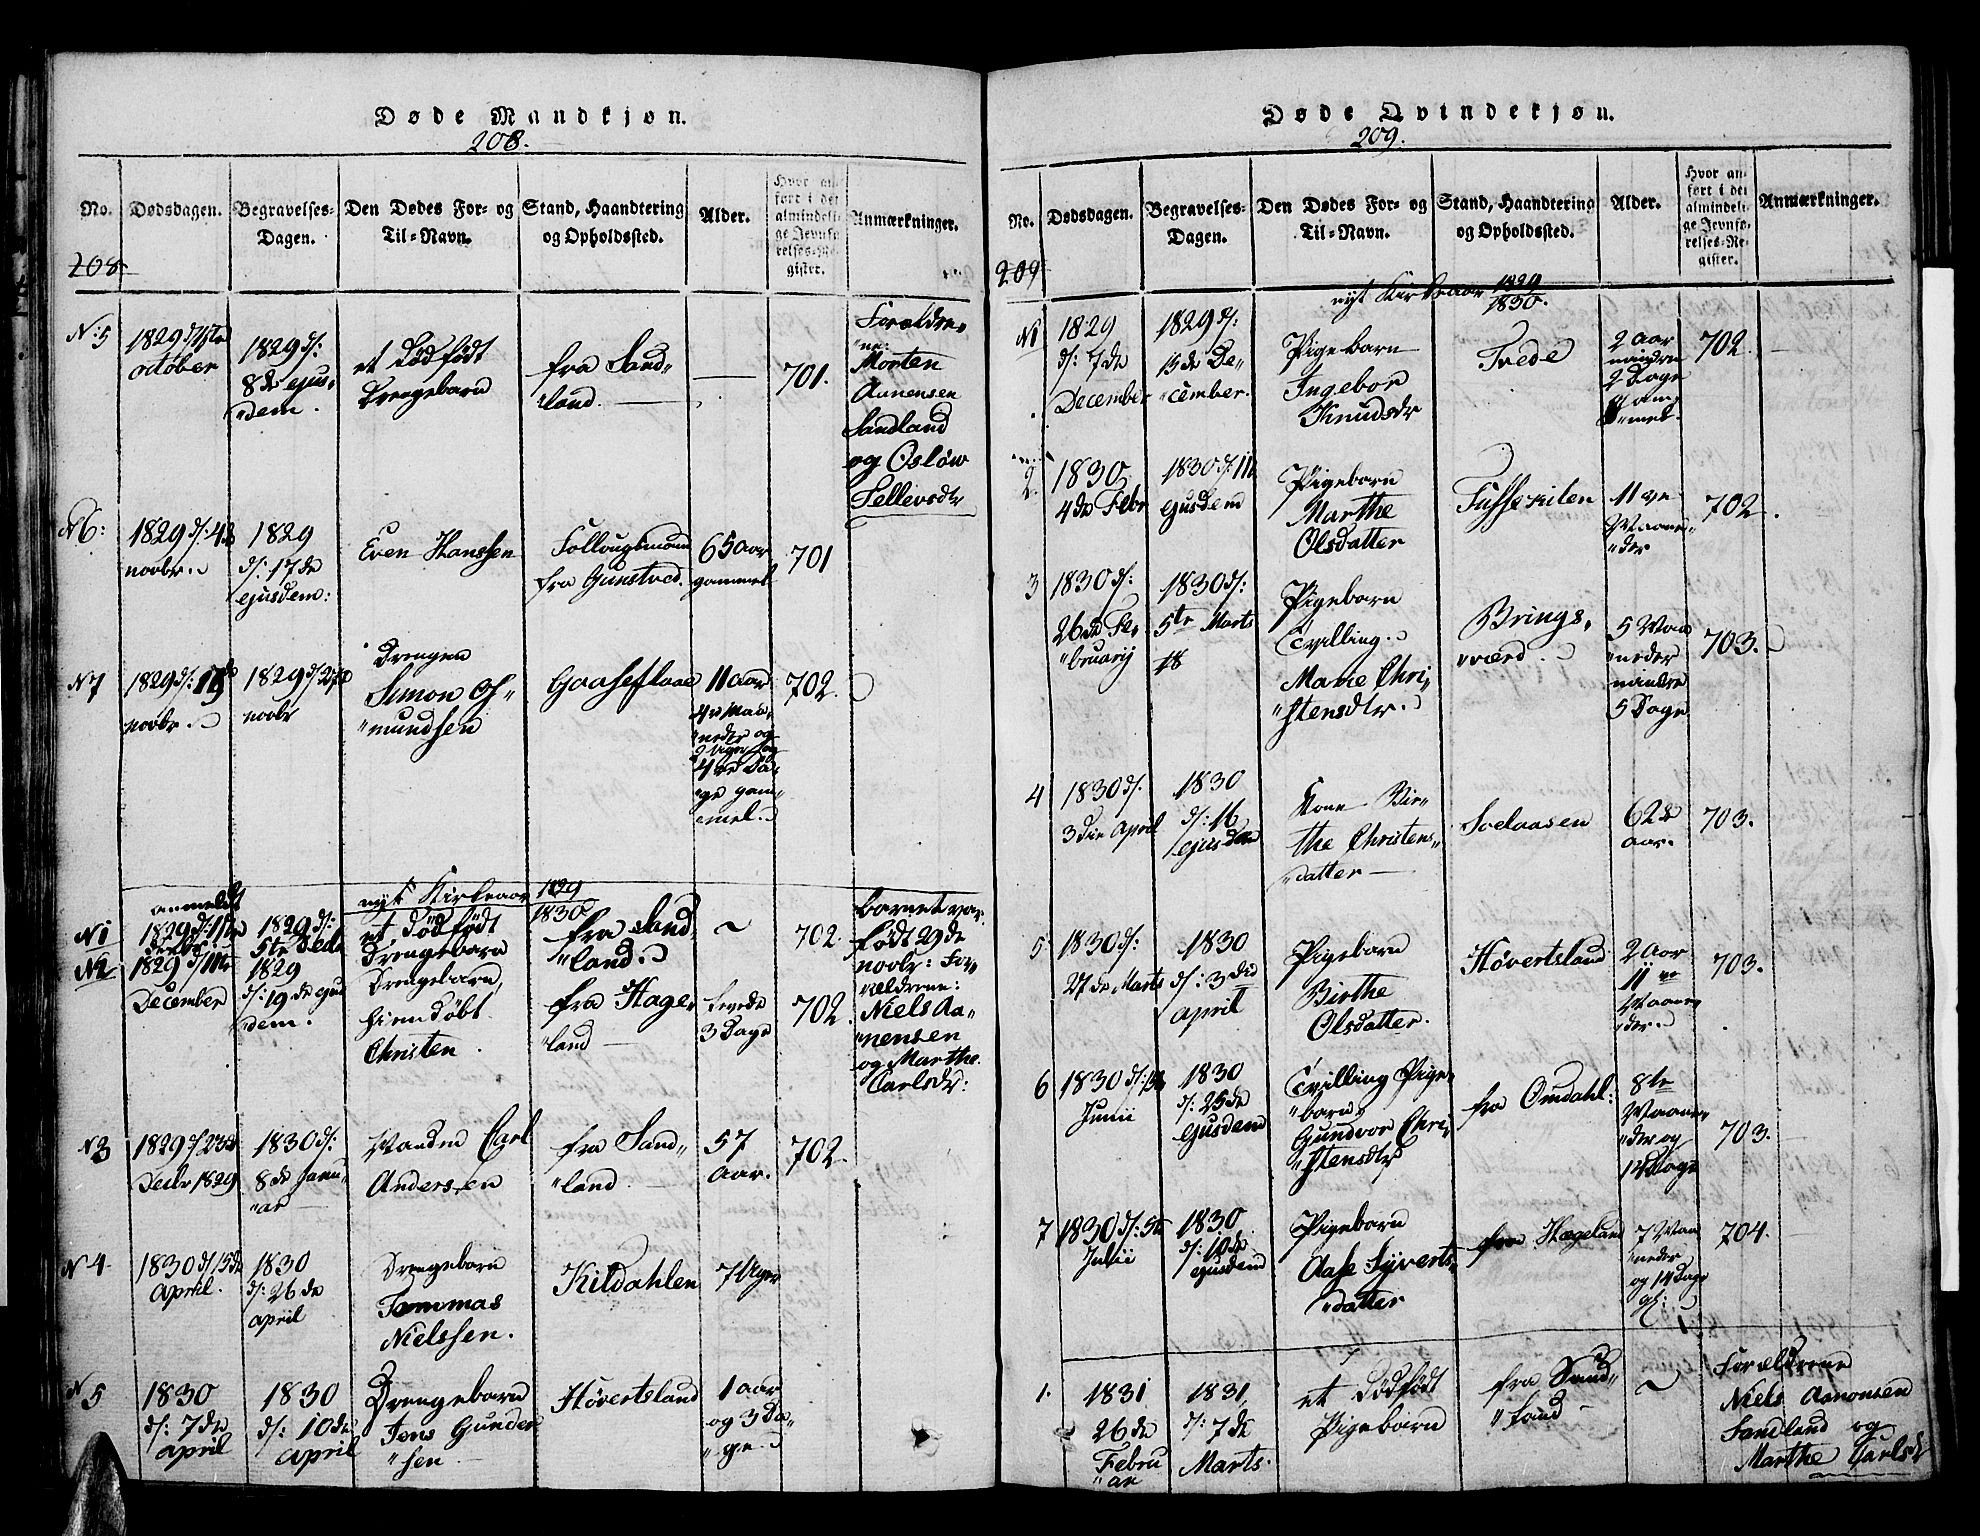 Døde Mandkjøn.
208.
No.
Dødsdagen.
Begravelses-
Dagen.
Den Dødes For- og
Til-Navn.
Stand, Haandtering
og Opholdssted.
Alder.
Hvor an-
ført i det
almindeli-
ge Jevnfø-
relses-Re-
gister.
Anmærkninger.
208
N:5
1829 d/
october
1829 d/:
8de ejus„
„dem.
et Dødfødt
Drengebarn
fra Sand„
„land.
701.
Forældre„
„ne:
Morten
Aanensen
Sandland
og Osløw
Tellevsdtr
N6:
1829 d/: 4de
novbr.
1829
d/: 17de
ejusdem:
Even Hanssen
Follougsmand
fra Gunstved.
65 aar
gammel
701
N7
1829 d/:
novbr.
1829 d/
novbr
Drengen
Simon Os„
„mundsen
Gaaseflaae
11 aar
4re Maa„
„neder og
2 Uger og
4re Da„
„ge gam„
„mel.
702.
nyt Kirkeaar 1829
1830
N1
anmeldt
1829 d/: 11te
1829 d/:
5te Decbr
et dødfødt
Drengebarn
fra Sand„
„land.
~
702.
barnet var
født 29de
novbr: For„
„ældrene:
Niels Aa„
„nensen
og Marthe
Carlsdtr:
N2
1829 d/
December
1829
d/: 19de ejus
dem.
Drengebarn,
hiemdøbt
Christen.
fra Hage„
„land
levede
3 Dage
702.
N3
1829 d/ 23de
Decbr 1829
1830 d/:
8de Janu„
„ar
Manden Carl
Anderssen
fra Sand„
„land
57
Aar.
702.
N4
1830 d/ 15de
April.
1830
d/: 26de
april
Drengebarn
Tommas
Nielssen.
Kildahlen
7 Uger
N5
1830
d/: 7de
april
1830
d/: 10de
April
Drengebarn
Jens Gunder„
„sen
Høvertsland
1 aar
og 3 Da„
„ge
Døde Qvindekjøn.
209.
No.
Dødsdagen.
Begravelses-
Dagen.
Den Dødes For- og
Til-Navn.
Stand, Haandtering
og Opholdssted.
Alder.
Hvor an-
ført i det
almindeli-
ge Jevnfø-
relses-Re-
gister.
Anmærkninger.
209
nyt Kirkeaar 1829
1830.
N1
1829
d/: 7de
December
1829 d/:
13de De„
„cember.
Pigebarn
Ingebor
Knudsdtr
Tvede
2 aar
mindre
2 Dage
gam„
„mel.
702.
2.
1830
4de Febr
1830 d/: 11te
ejusdem
Pigebarn
Marthe
Olsdatter
Tusseкilen
11 ve
Maane„
„der
702.
3
1830 d/:
26de Fe„
„bruarij
1830 d/:
5te Marts
Pigebarn
Tvilling.
Marie Chri„
„stensdtr.
Brings„
„værd.
5 Maa
„neder
mindre
5 Dage
703.
4
1830 d/.
3die April
1830
d/: 16
ejusdem
Kone Bir„
the Christens„
„datter
Solaasen
62de
aar.
703.
5
1830 d/:
27de Marts
1830
d/: 3die
April
Pigebarn
Birthe
Olsdatter.
Høvertsland
2 Aar
11 ve
Maane„
„der.
703.
6
1830 d/:
Junii
1830
d/: 25de
ejusdem
Tvilling Pige„
„barn
Gundvor Chri„
„stensdtr
fra Omdahl:
8te
Maane„
„der og
14 Dage
703.
7
1830 d/: 5te
Julii
1830
d/: 10de
ejusdem
Pigebarn
Aase Syverts„
„datter
fra Hægeland
7 Maa
„neder
og 14 Dage
gl:
704.
1.
1831
26de
Febru
„ar
1831
d/: 7de
Marts.
et Dødfødt
Pigebarn
fra Sand„
„land
~
Forældrene
Niels Aanonsen
Sandland og
Marthe Carlsdtr